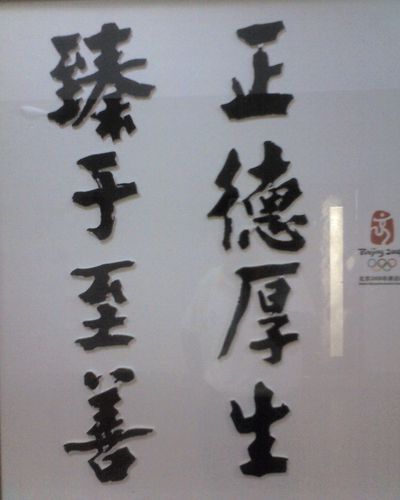 正德厚生
臻于至善
Beijing 2008